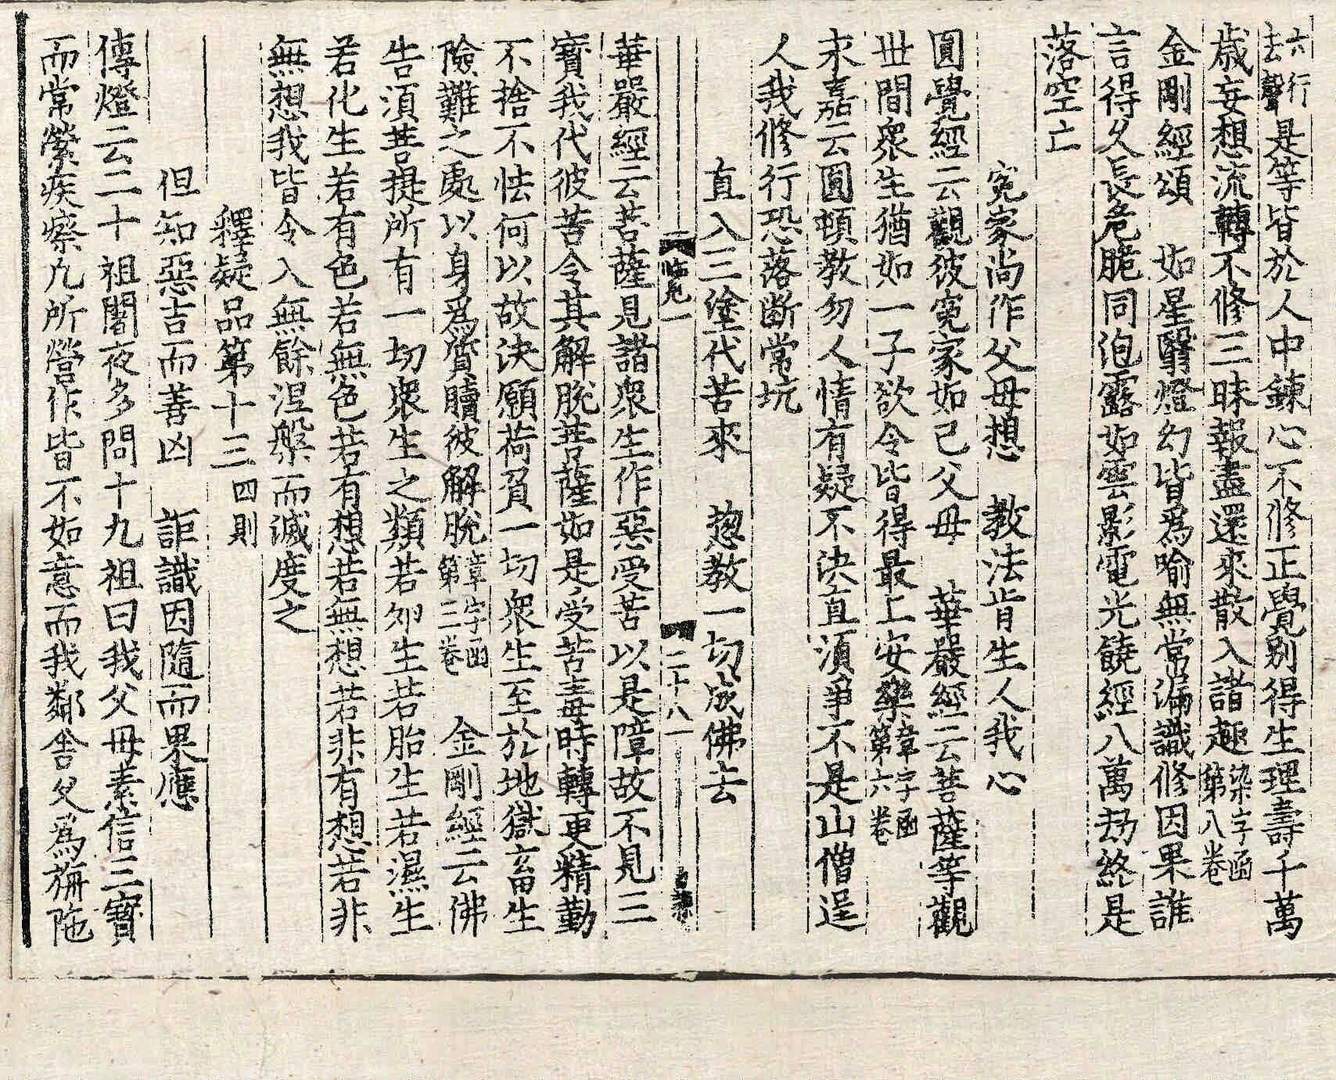 六行去聲是等皆於人中鍊心不修正覺別得生理壽千萬
歲妄想流轉不修三昧報盡還來散入諸趣染字函第八卷
金剛經頌　如星翳燈幻皆爲喻無常漏識修因果誰
言得久長危脆同泡露如雲影電光饒經八萬劫終是
落空亡
冤家尚作父母想　教法肯生人我心
圓覺經云觀彼冤家如己父母　華嚴經云菩薩等觀
世間衆生猶如一子欲令皆得最上安樂章字函第六卷
永嘉云圓頓教勿人情有疑不決直須爭不是山僧逞
人我修行恐落斷常坑
直入三塗代苦來　惣教一切成佛去
二十八
華嚴經云菩薩見諸衆生作惡受苦以是障故不見三
寶我代彼苦令其解脫菩薩如是受苦毒時轉更精勤
不捨不怯何以故決願荷負一切衆生至於地獄畜生
險難之處以身爲質贖彼解脫章字函第三卷　金剛經云佛
告須菩提所有一切衆生之類若卵生若胎生若濕生
若化生若有色若無色若有想若無想若非有想若非
無想我皆令入無餘涅槃而滅度之
釋疑品第十三四則
但知惡吉而善凶　詎識因隨而果應
傳燈云二十祖闍夜多問十九祖曰我父母素信三寶
而常縈疾瘵凡所營作皆不如意而我鄰舍父爲旃陁